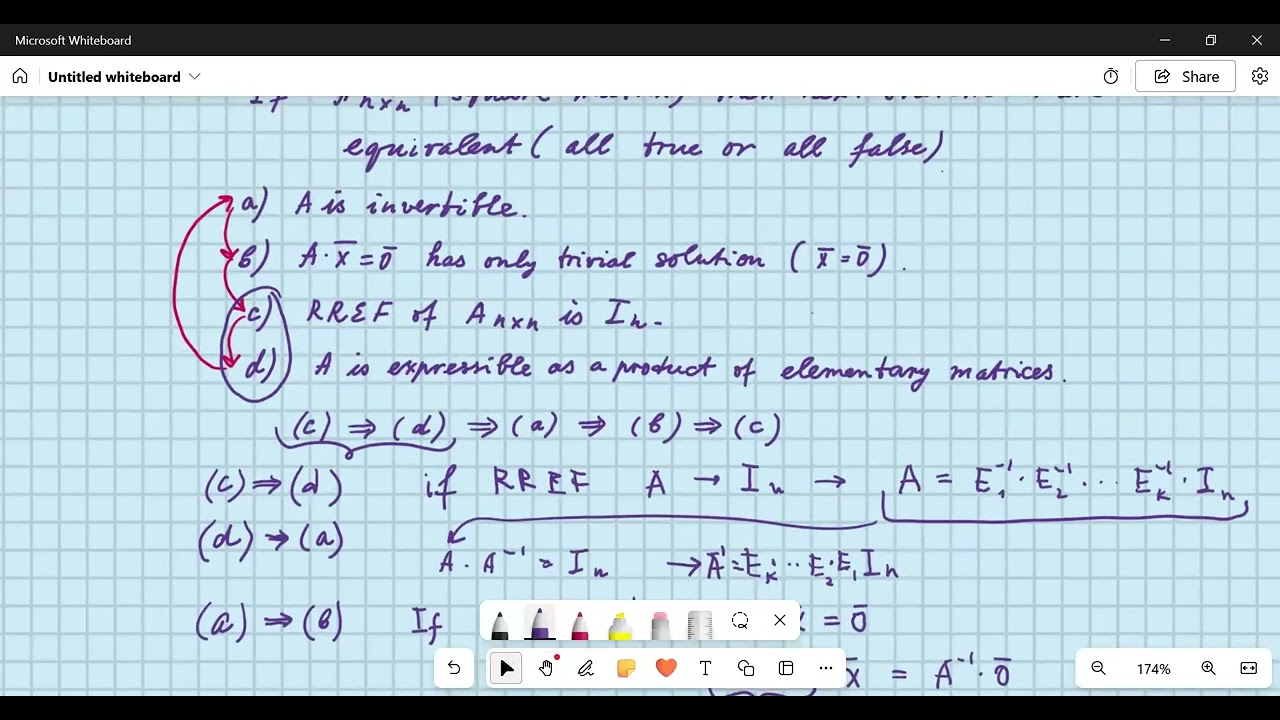 Microsoft Whiteboard
Untitled whiteboard
Share
If A n×n (square matrix) then
equivalent ( all true or all false)
a) A is invertible.
b) A · x̄ = ō has only trivial solution ( x̄ = ō ) .
c) RREF of Aₙₓₙ is Iₙ.
d) A is expressible as a product of elementary matrices.
(c) ⇒ (d) ⇒ (a) ⇒ (b) ⇒ (c)
(c) ⇒ (d) if RREF A → Iₙ → A = E₁⁻¹ · E₂⁻¹ ... Eₖ⁻¹ · Iₙ
(d) → (a) A · A⁻¹ = Iₙ → A⁻¹ = Eₖ ... E₂ · E₁ Iₙ
(a) ⇒ (b) If = ō
x̄ = A⁻¹ · ō
174%